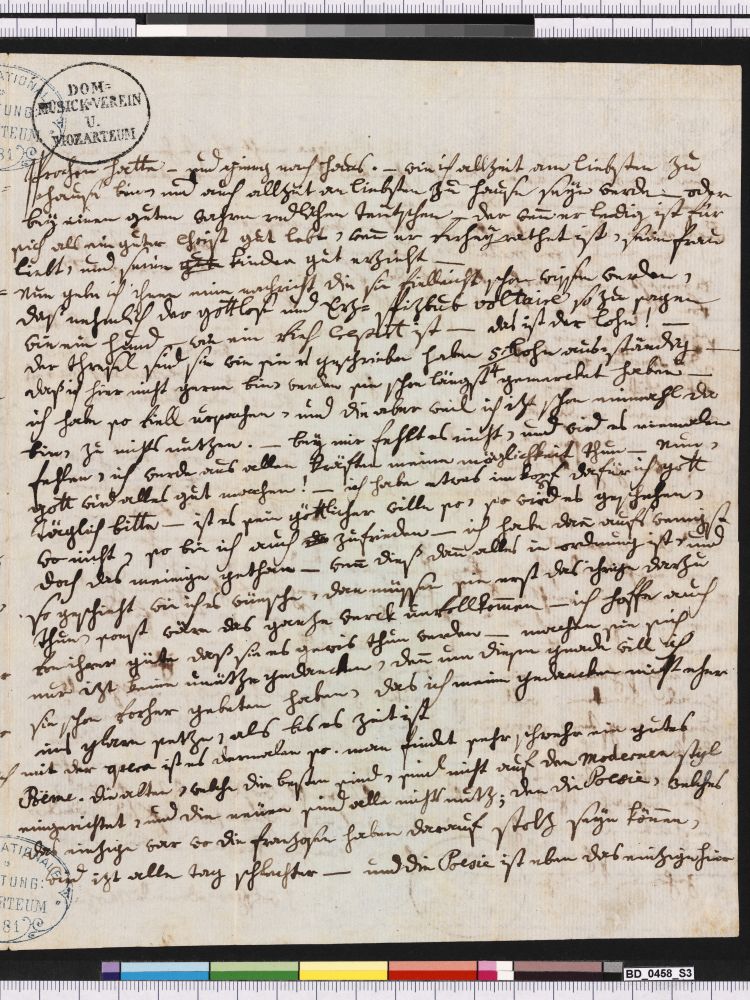 DOM=
MUSICK=VEREIN
U.
MOZARTEUM
sprochen hatte – und gieng nach haus. – wie ich allzeit am liebsten zu
hause bin, und auch allzeit am liebsten zu hause seyn werde – oder
bey einen guten wahren redlichen teütschen – der wenn er ledig ist für
sich als ein guter Christ gut lebt, wenn er verheyrathet ist, seine frau
liebt, und seine kinder gut erzieht –
Nun gebe ich ihnen eine nachricht die sie vielleicht schon wissen werden,
daß nehmlich der gottlose und Erz=spizbub voltaire so zu sagen
wie ein hund – wie ein vieh crepirt ist – das ist der lohn! –
der thresel sind sie wie sie geschrieben haben 5 lohn ausständig –
daß ich hier nicht gerne bin, werden sie schon längst gemerket haben –
ich habe so viell ursachen, und die aber weil ich itzt schon einmahl da
bin, zu nichts nutzen. – bey mir fehlt es nicht, und wird es niemalen
fehlen, ich werde aus allen kräften meine möglichkeit thun – Nun,
gott wird alles gut machen! – ich habe etwas im kopf dafür ich gott
täglich bitte – ist es sein göttlicher wille so, so wird es geschehen,
wo nicht, so bin ich auch zufrieden – ich habe dann aufs wenigst
doch das meinige gethan – wenn dieß dann alles in ordnung ist, und
so geschieht wie ich es wünsche, dann müssen sie erst das ihrige darzu
thun, sonst wäre das ganze werck unvollkommen – ich hoffe auch
von ihrer güte daß sie es gewis thun werden – machen sie sich
nur itzt keine unütze gedancken, denn um diese gnade will ich
sie schon vorher gebeten haben, das ich meine gedancken nicht eher
ins glare setze, als bis es zeit ist
mit der opera ist es dermalen so. man findet sehr schwehr ein gutes
Poëme. die alten, welche die besten sind, sind nicht auf den Modernen styl
eingerichtet, und die neüen sind alle nichts nutz; denn die Poesie, welches
das einzige war wo die franzosen haben darauf stolz seyn können,
wird itzt alle tag schlechter – und die Poesie ist eben das einzige hier
BD_0458_S3